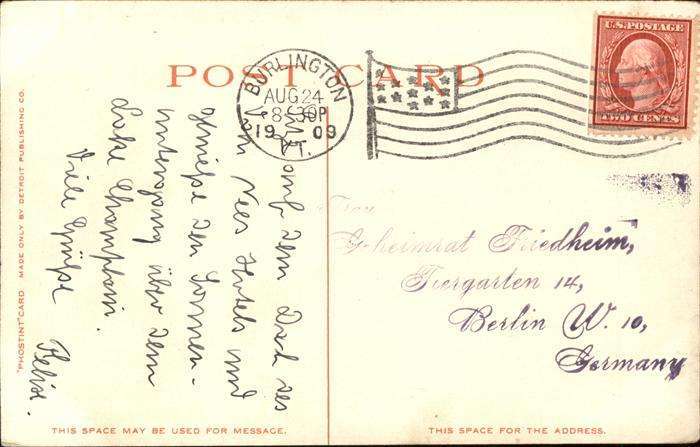 POST CARD
BURLINGTON
AUG 24
8-30P
1909
VT.
U.S. POSTAGE
TWO CENTS
auf dem Dach des
Van Ness Hotels und
genieße den Sonnen-
untergang über dem
Lake Champlain.
Viele Grüße
Felix.
Frau
Geheimrat Friedheim,
Tiergarten 14,
Berlin W. 10,
Germany
"PHOSTINT" CARD MADE ONLY BY DETROIT PUBLISHING CO.
THIS SPACE MAY BE USED FOR MESSAGE.
THIS SPACE IS FOR THE ADDRESS.